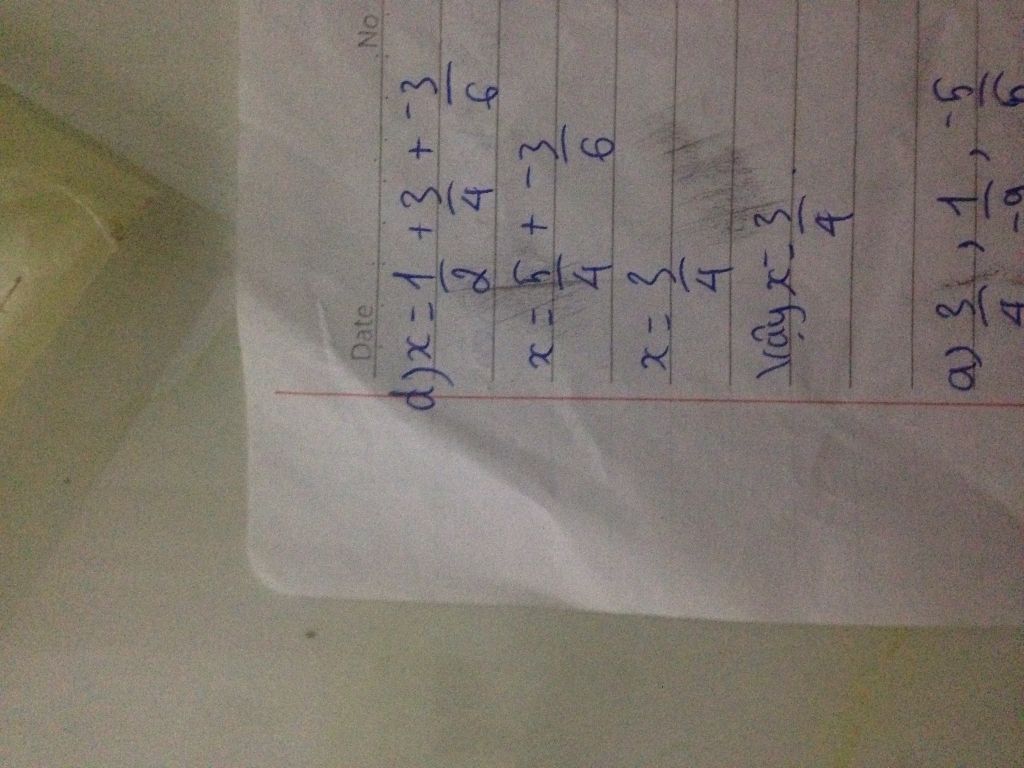 Date No
d) x = 1/2 + 3/4 + -3/6
x = 5/4 + -3/6
x = 3/4
Vậy x = 3/4.
a) 3/4, 1/-9, -5/6